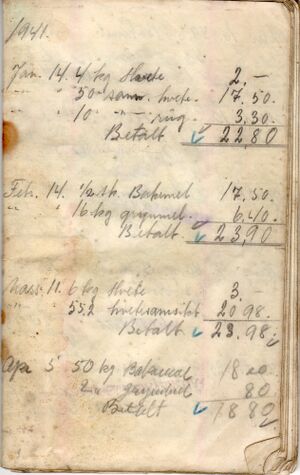 1941.
Jan. 14. 4 kg Hvete 2.-
" 50 " samm. hvete. 17.50.
" 10 " " rug 3.30
Betalt 22.80
Feb. 14. 1/2 sk. Bakemel 17.50.
" 16 kg grynmel. 6.40.
Betalt 23.90
Mars 11. 6 kg Hvete 3.-
" 55.2 hvetesamsikt 20.98.
Betalt 23.98
Apr 5 50 kg Bakemel 18 00
2 " grynmel 80
Betalt 18 80